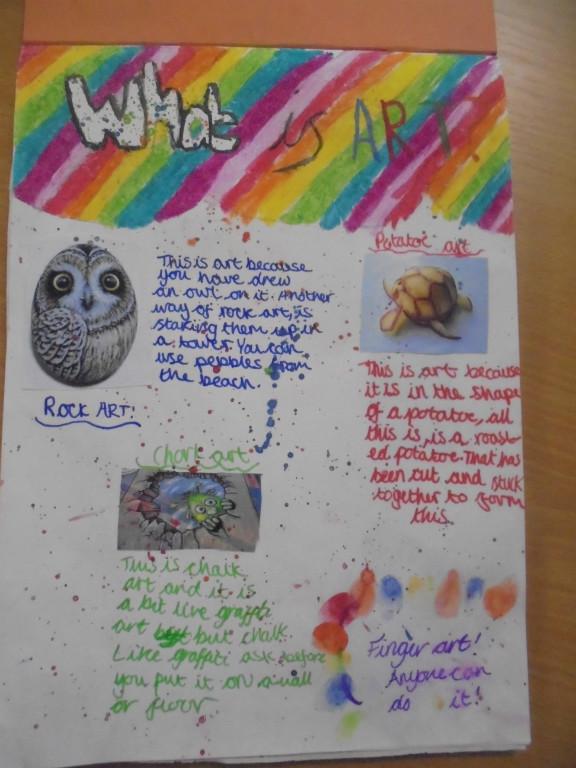 What is ART?
This is art because
you have drew
an owl on it. Another
way of rock art, is
staking them up in
a tower. You can
use pebbles from
the beach.
ROCK ART!
Potatoe art
This is art because
it is in the shape
of a potatoe, all
this is, is a roast
ed potatoe. That has
been cut and stuck
together to form
this.
Chark art
This is chalk
art and it is
a bit like graffti
art but chalk.
Like graffati ask before
you put it on a wall
or floor
Finger art!
Anyone can
do it!